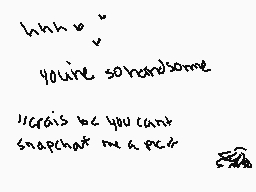 hhh
you're so handsome
//crais bc you cant
snapchat me a pic